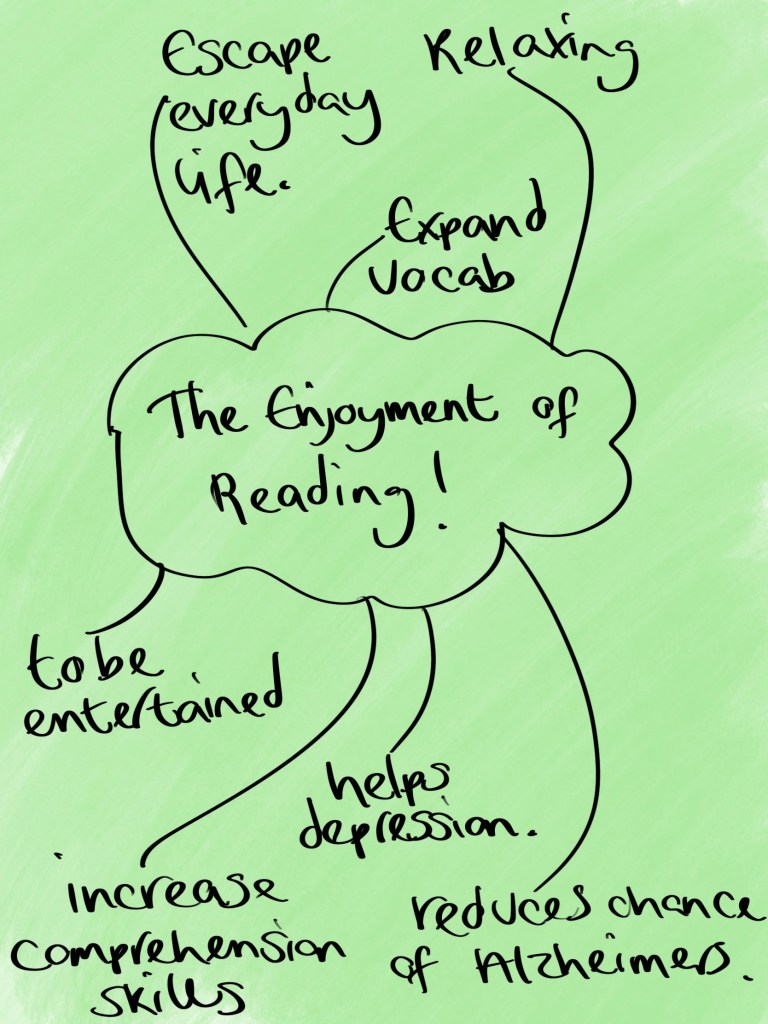 Escape
everyday
life.
Relaxing
Expand
vocab
The Enjoyment of
Reading!
to be
entertained
helps
depression.
increase
comprehension
skills
reduces chance
of Alzheimers.